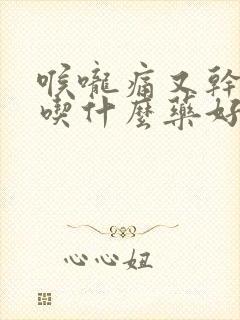 喉嚨痛又幹
喫什麼藥好
心心妞